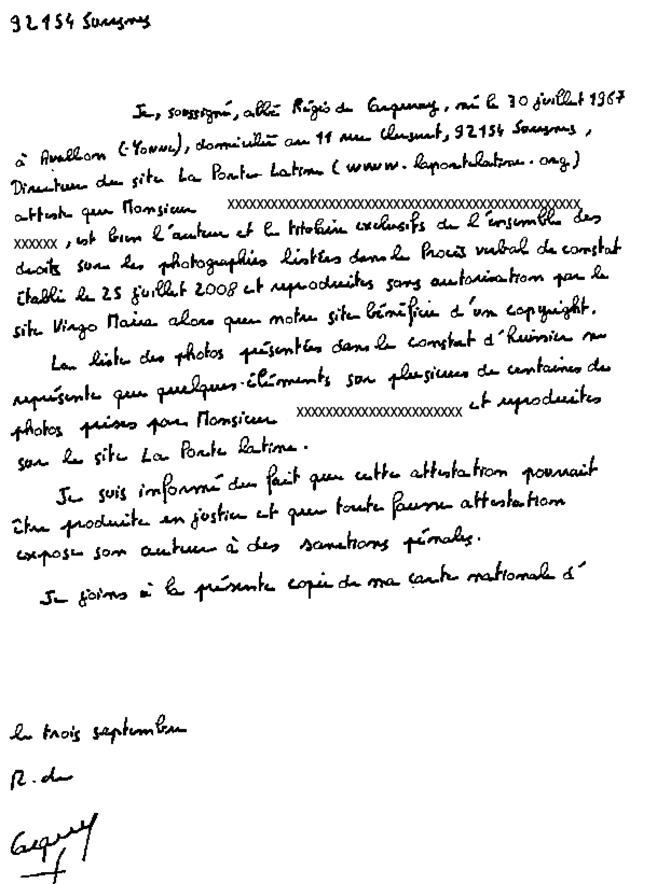 92154 Suresnes
Je, soussigné, abbé Régis de Cacqueray, né le 30 juillet 1967
à Avallon (Yonne), domicilié au 11 rue Cluseret, 92154 Suresnes,
Directeur du site La Porte Latine (www.laportelatine.org)
atteste que Monsieur xxxxxxxxxxxxxxxxxxxxxxxxxxxxxxxxxxxxxxxxxxxxxxxxx
xxxxxx, est bien l'auteur et le titulaire exclusifs de l'ensemble des
droits sur les photographies listées dans le Procès verbal de constat
établi le 25 juillet 2008 et reproduites sans autorisation par le
site Virgo Maria alors que notre site bénéficie d'un copyright.
La liste des photos présentées dans le constat d'huissier ne
représente que quelques éléments sur plusieurs de centaines de
photos prises par Monsieur xxxxxxxxxxxxxxxxxxxxxxx et reproduites
sur le site La Porte Latine.
Je suis informé du fait que cette attestation pourrait
être produite en justice et que toute fausse attestation
expose son auteur à des sanctions pénales.
Je joins à la présente copie de ma carte nationale d'
le trois septembre
R. de
Cacqueray